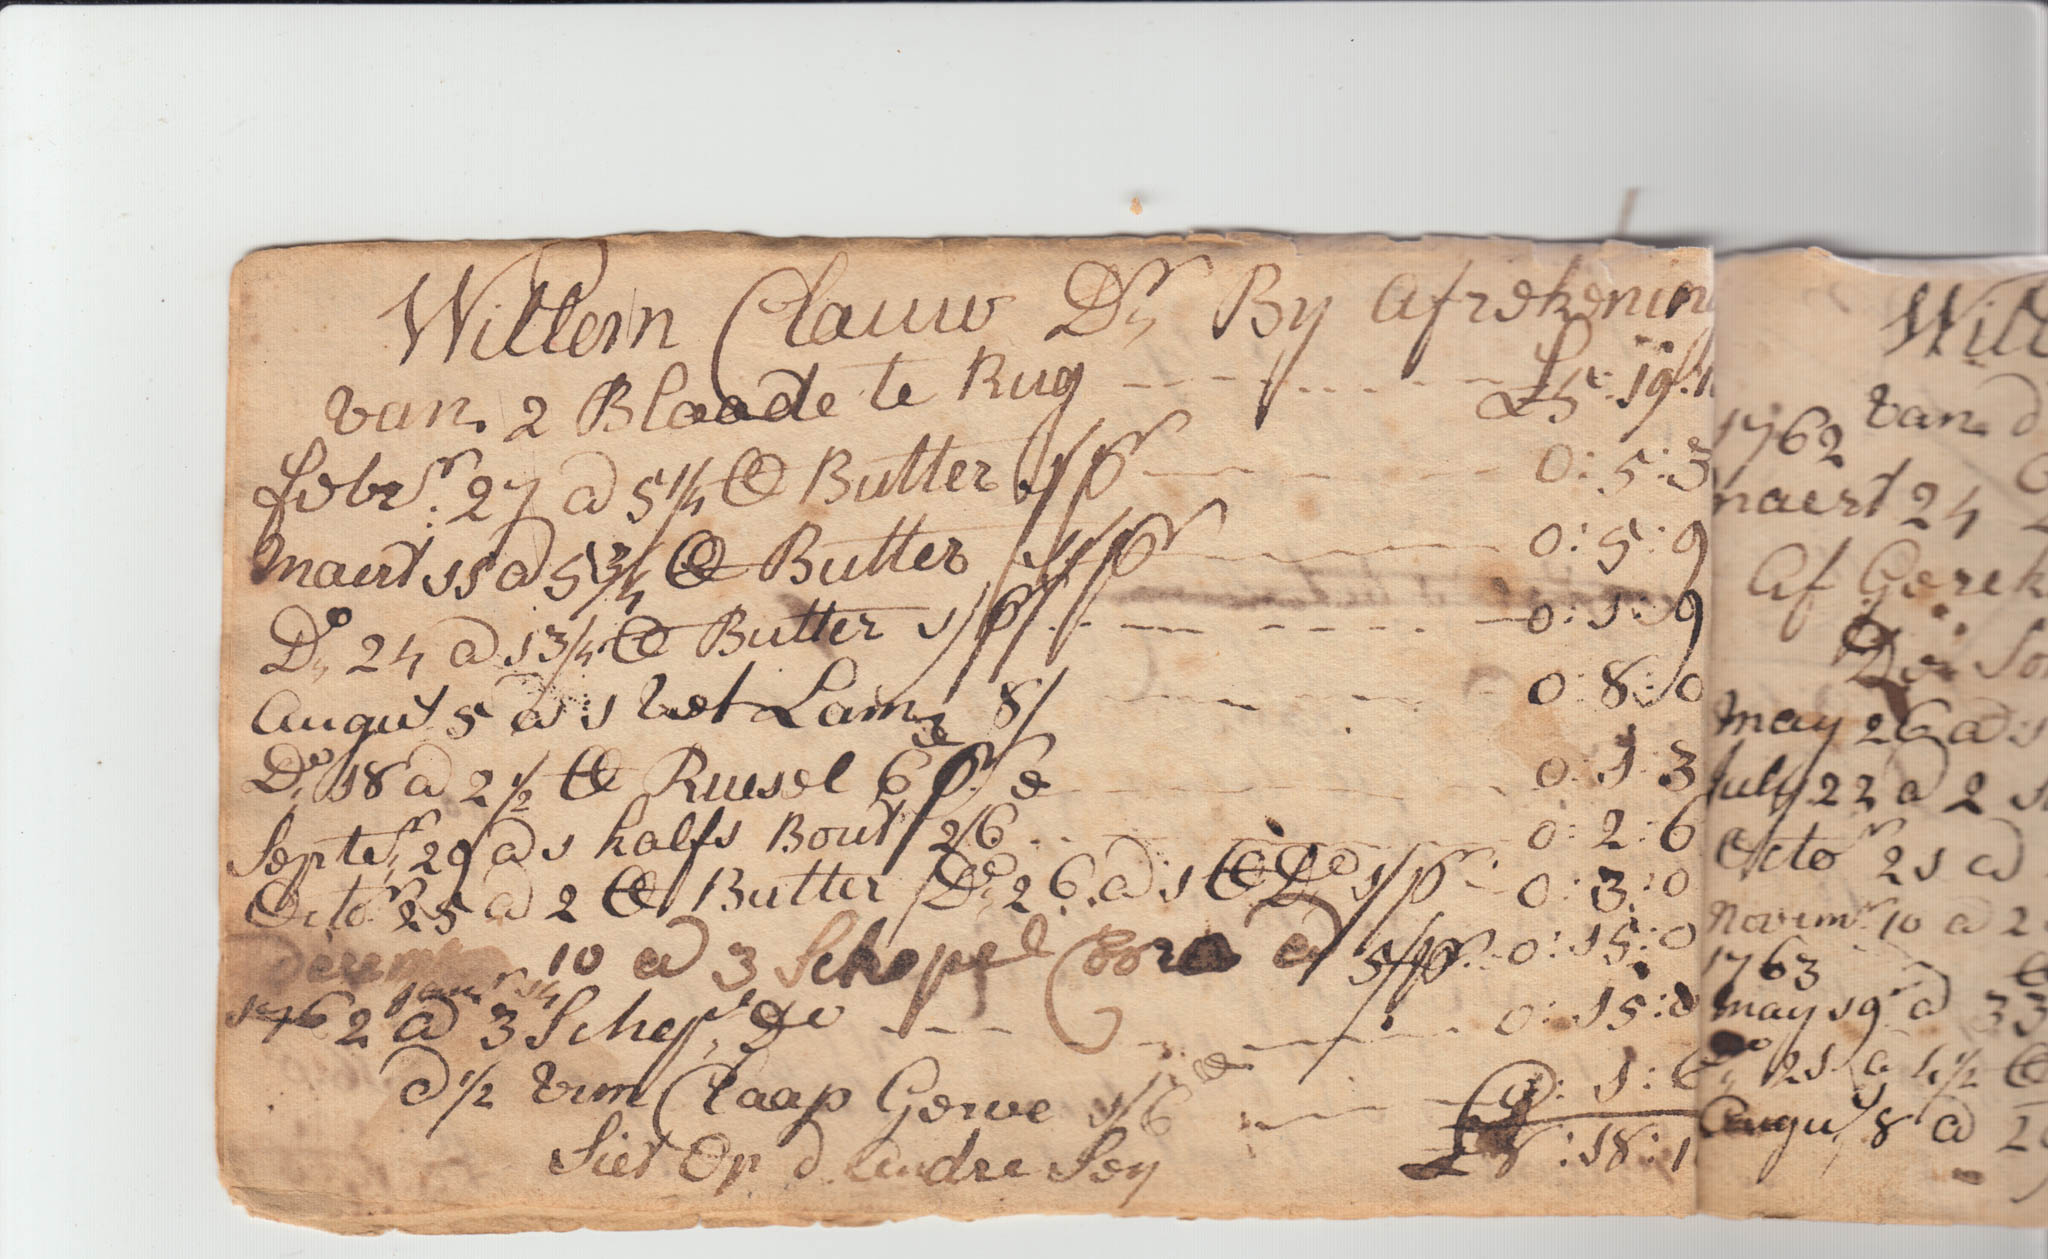 Willem Clauw Dr By Afrekenin
van 2 Blaade te Rug £5:19:1
Febrr: 27 a 5¼ ℔ Butter 1/pr 0:5:3
Maert 15 a 5¾ ℔ Butter 1/pr 0:5:9
Do 24 a 1¾ ℔ Butter 1/pr 0:1:9
Augut 5 a 1 vet Lam 8/ 0:8:0
Do 18 a 2½ ℔ Ruesel 6 pr 0:1:3
Septer 29 a 1 halfs Bout 2/6 0:2:6
Octor 25 a 2 ℔ Butter Do 26 a 1 ℔ Do 1/pr 0:3:0
Decemr 10 a 3 Schepel Coorn a 5/pr 0:15:0
1762 Janr 14 a 3 Schepl do 0:15:0
a ½ vim Claap Gerwe 1/6 0:1:6
Siet Op d andre Sey £8:18:1
Will
van d
1762
maert 24
Af Gerek
May 26 a 1
July 22 a 2
Octor 21 a
Novemr 10 a 2
1763
May 19 a 33
Do 21 a 4½ ℔
Augut 8 a 2